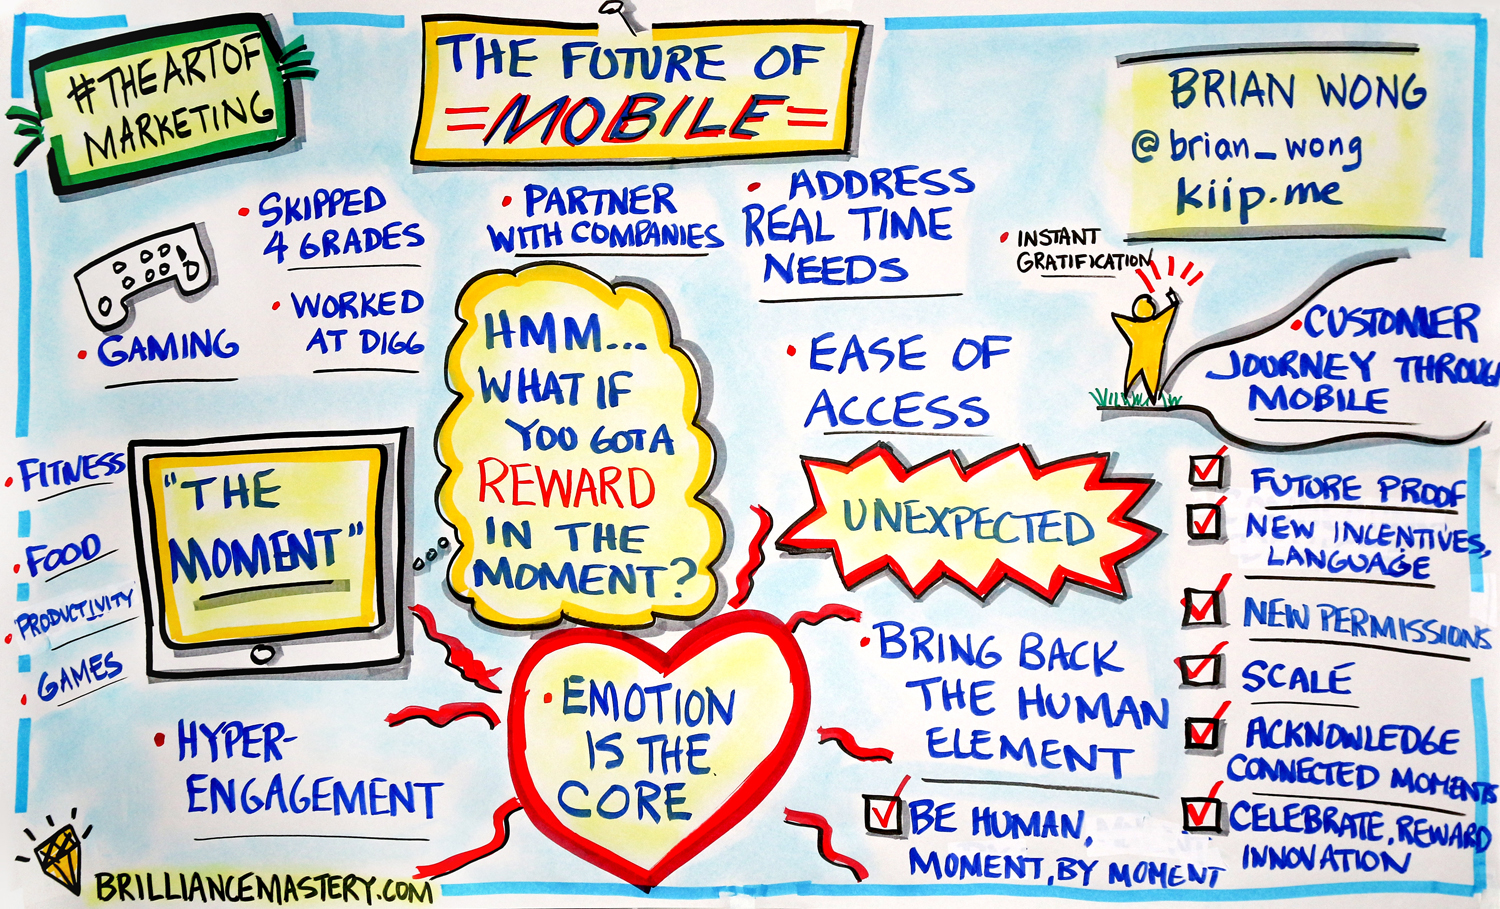 #THEARTOF
MARKETING
THE FUTURE OF
=MOBILE=
BRIAN WONG
@brian_wong
kiip.me
• SKIPPED
4 GRADES
• WORKED
AT DIGG
• GAMING
• PARTNER
WITH COMPANIES
• ADDRESS
REAL TIME
NEEDS
• INSTANT
GRATIFICATION
• EASE OF
ACCESS
• CUSTOMER
JOURNEY THROUGH
MOBILE
HMM...
WHAT IF
YOU GOT A
REWARD
IN THE
MOMENT?
• FITNESS
• FOOD
• PRODUCTIVITY
• GAMES
"THE
MOMENT"
UNEXPECTED
• HYPER-
ENGAGEMENT
• EMOTION
IS THE
CORE
• BRING BACK
THE HUMAN
ELEMENT
BE HUMAN,
MOMENT, BY MOMENT
FUTURE PROOF
NEW INCENTIVES,
LANGUAGE
NEW PERMISSIONS
SCALE
ACKNOWLEDGE
CONNECTED MOMENTS
CELEBRATE, REWARD
INNOVATION
BRILLIANCEMASTERY.COM